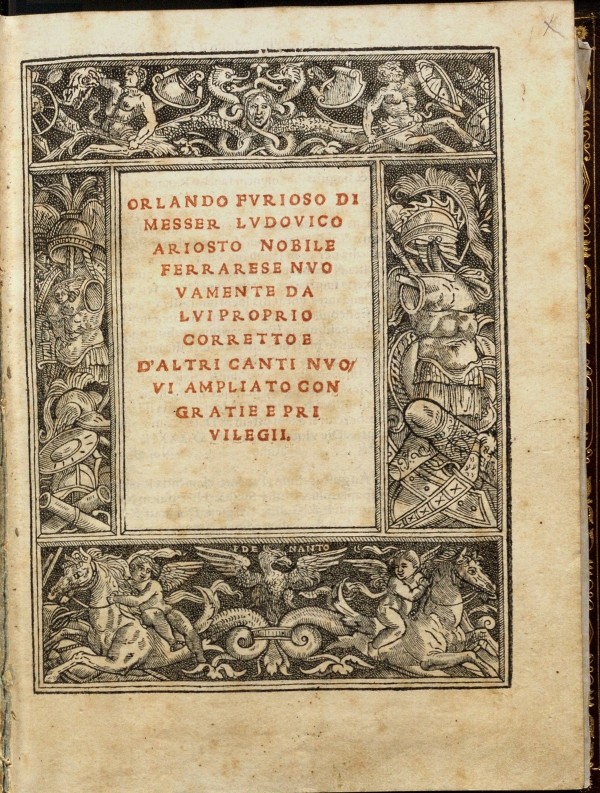 ORLANDO FVRIOSO DI
MESSER LVDOVICO
ARIOSTO NOBILE
FERRARESE NVO
VAMENTE DA
LVI PROPRIO
CORRETTO E
D'ALTRI CANTI NVO/
VI AMPLIATO CON
GRATIE E PRI
VILEGII.
F DE NANTO